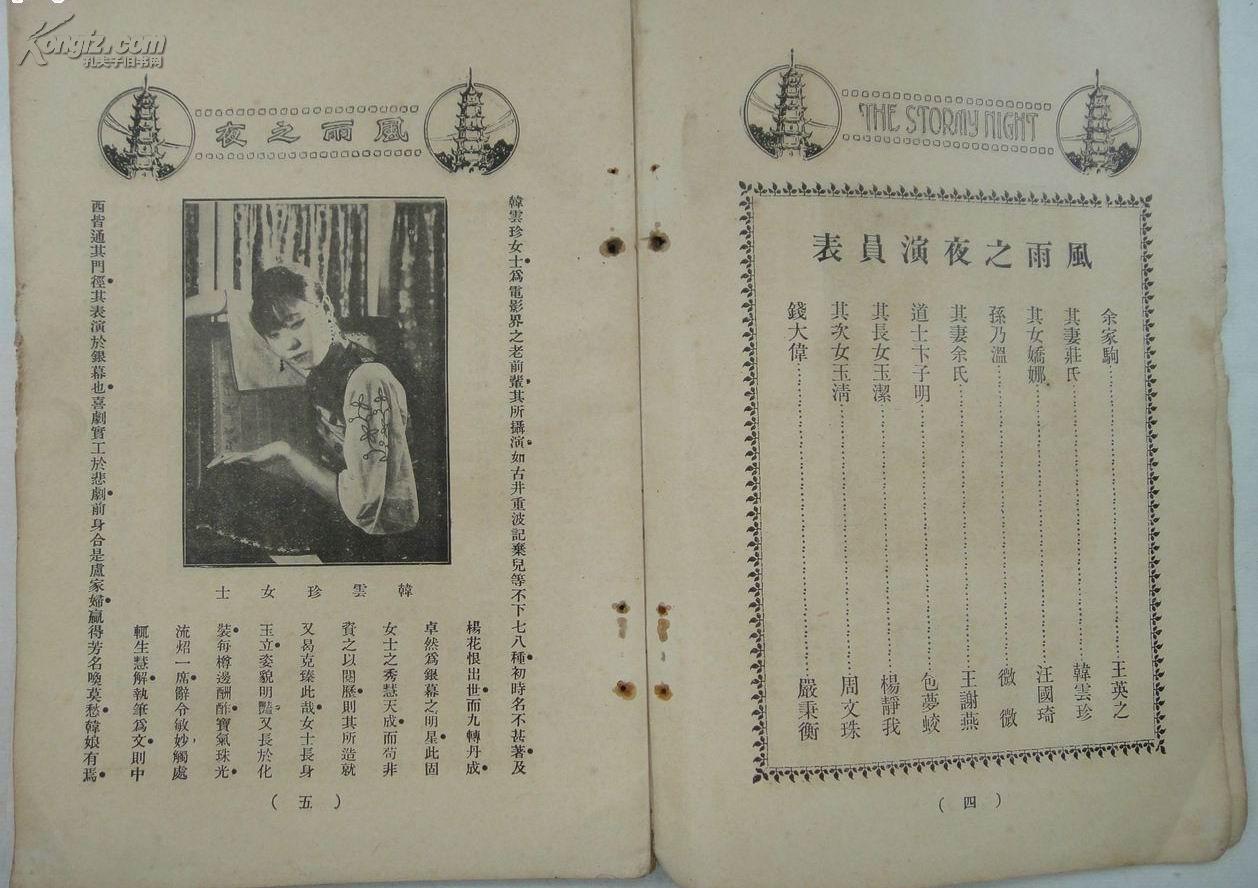 Kongfz.com
孔夫子旧书网
THE STORMY NIGHT
風雨之夜演員表
余家駒 王英之
其妻莊氏 韓雲珍
其女嬌娜 汪國琦
孫乃溫 微微
其妻余氏 王謝燕
道士卞子明 包夢蛟
其長女玉潔 楊靜我
其次女玉清 周文珠
錢大偉 嚴秉衡
(四)
風雨之夜
韓雲珍女士爲電影界之老前輩其所攝演如古井重波記棄兒等不下七八種初時名不甚著及
韓雲珍女士
楊花恨出世而九轉丹成
卓然爲銀幕之明星此固
女士之秀慧天成而苟非
資之以閱歷則其所造就
又曷克臻此哉女士長身
玉立姿貌明豔又長於化
裝每樽邊酬酢寶氣珠光
流炤一席辭令敏妙觸處
輒生慧解執筆爲文則中
西皆通其門徑其表演於銀幕也喜劇實工於悲劇前身合是盧家婦贏得芳名喚莫愁韓娘有焉
(五)